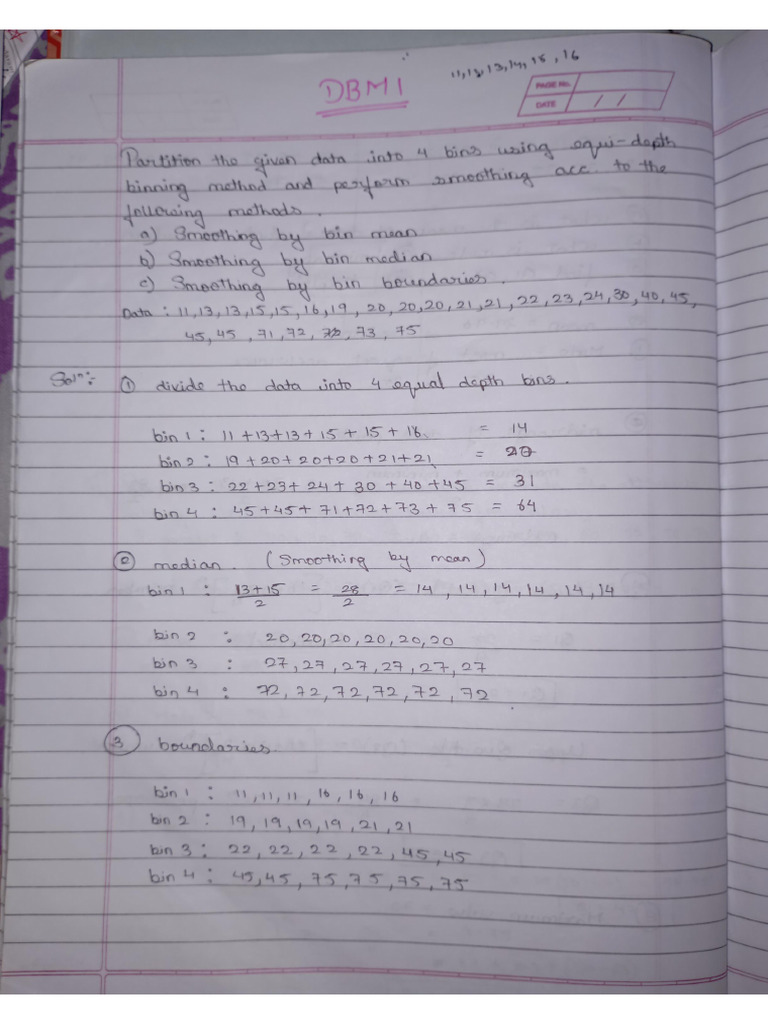 11,12,13,14,15,16
DBM1
PAGE No.
DATE / /
Partition the given data into 4 bins using equi-depth
binning method and perform smoothing acc. to the
following methods.
a) Smoothing by bin mean
b) Smoothing by bin median
c) Smoothing by bin boundaries.
Data : 11,13,13,15,15,16,19, 20, 20,20, 21,21, 22, 23, 24, 30, 40, 45,
45, 45, 71, 72, 73, 75
Soln:- ① divide the data into 4 equal depth bins.
bin 1 : 11+13+13+15+15+16 = 14
bin 2 : 19+20+20+20+21+21 = 20
bin 3 : 22+23+24+30+40+45 = 31
bin 4 : 45+45+71+72+73+75 = 64
② median. (Smoothing by mean)
bin 1 : 13+15/2 = 28/2 = 14, 14, 14, 14, 14, 14
bin 2 : 20, 20, 20, 20, 20, 20
bin 3 : 27, 27, 27, 27, 27, 27
bin 4 : 72, 72, 72, 72, 72, 72
③ boundaries.
bin 1 : 11, 11, 11, 16, 16, 16
bin 2 : 19, 19, 19, 19, 21, 21
bin 3 : 22, 22, 22, 22, 45, 45
bin 4 : 45, 45, 75, 75, 75, 75